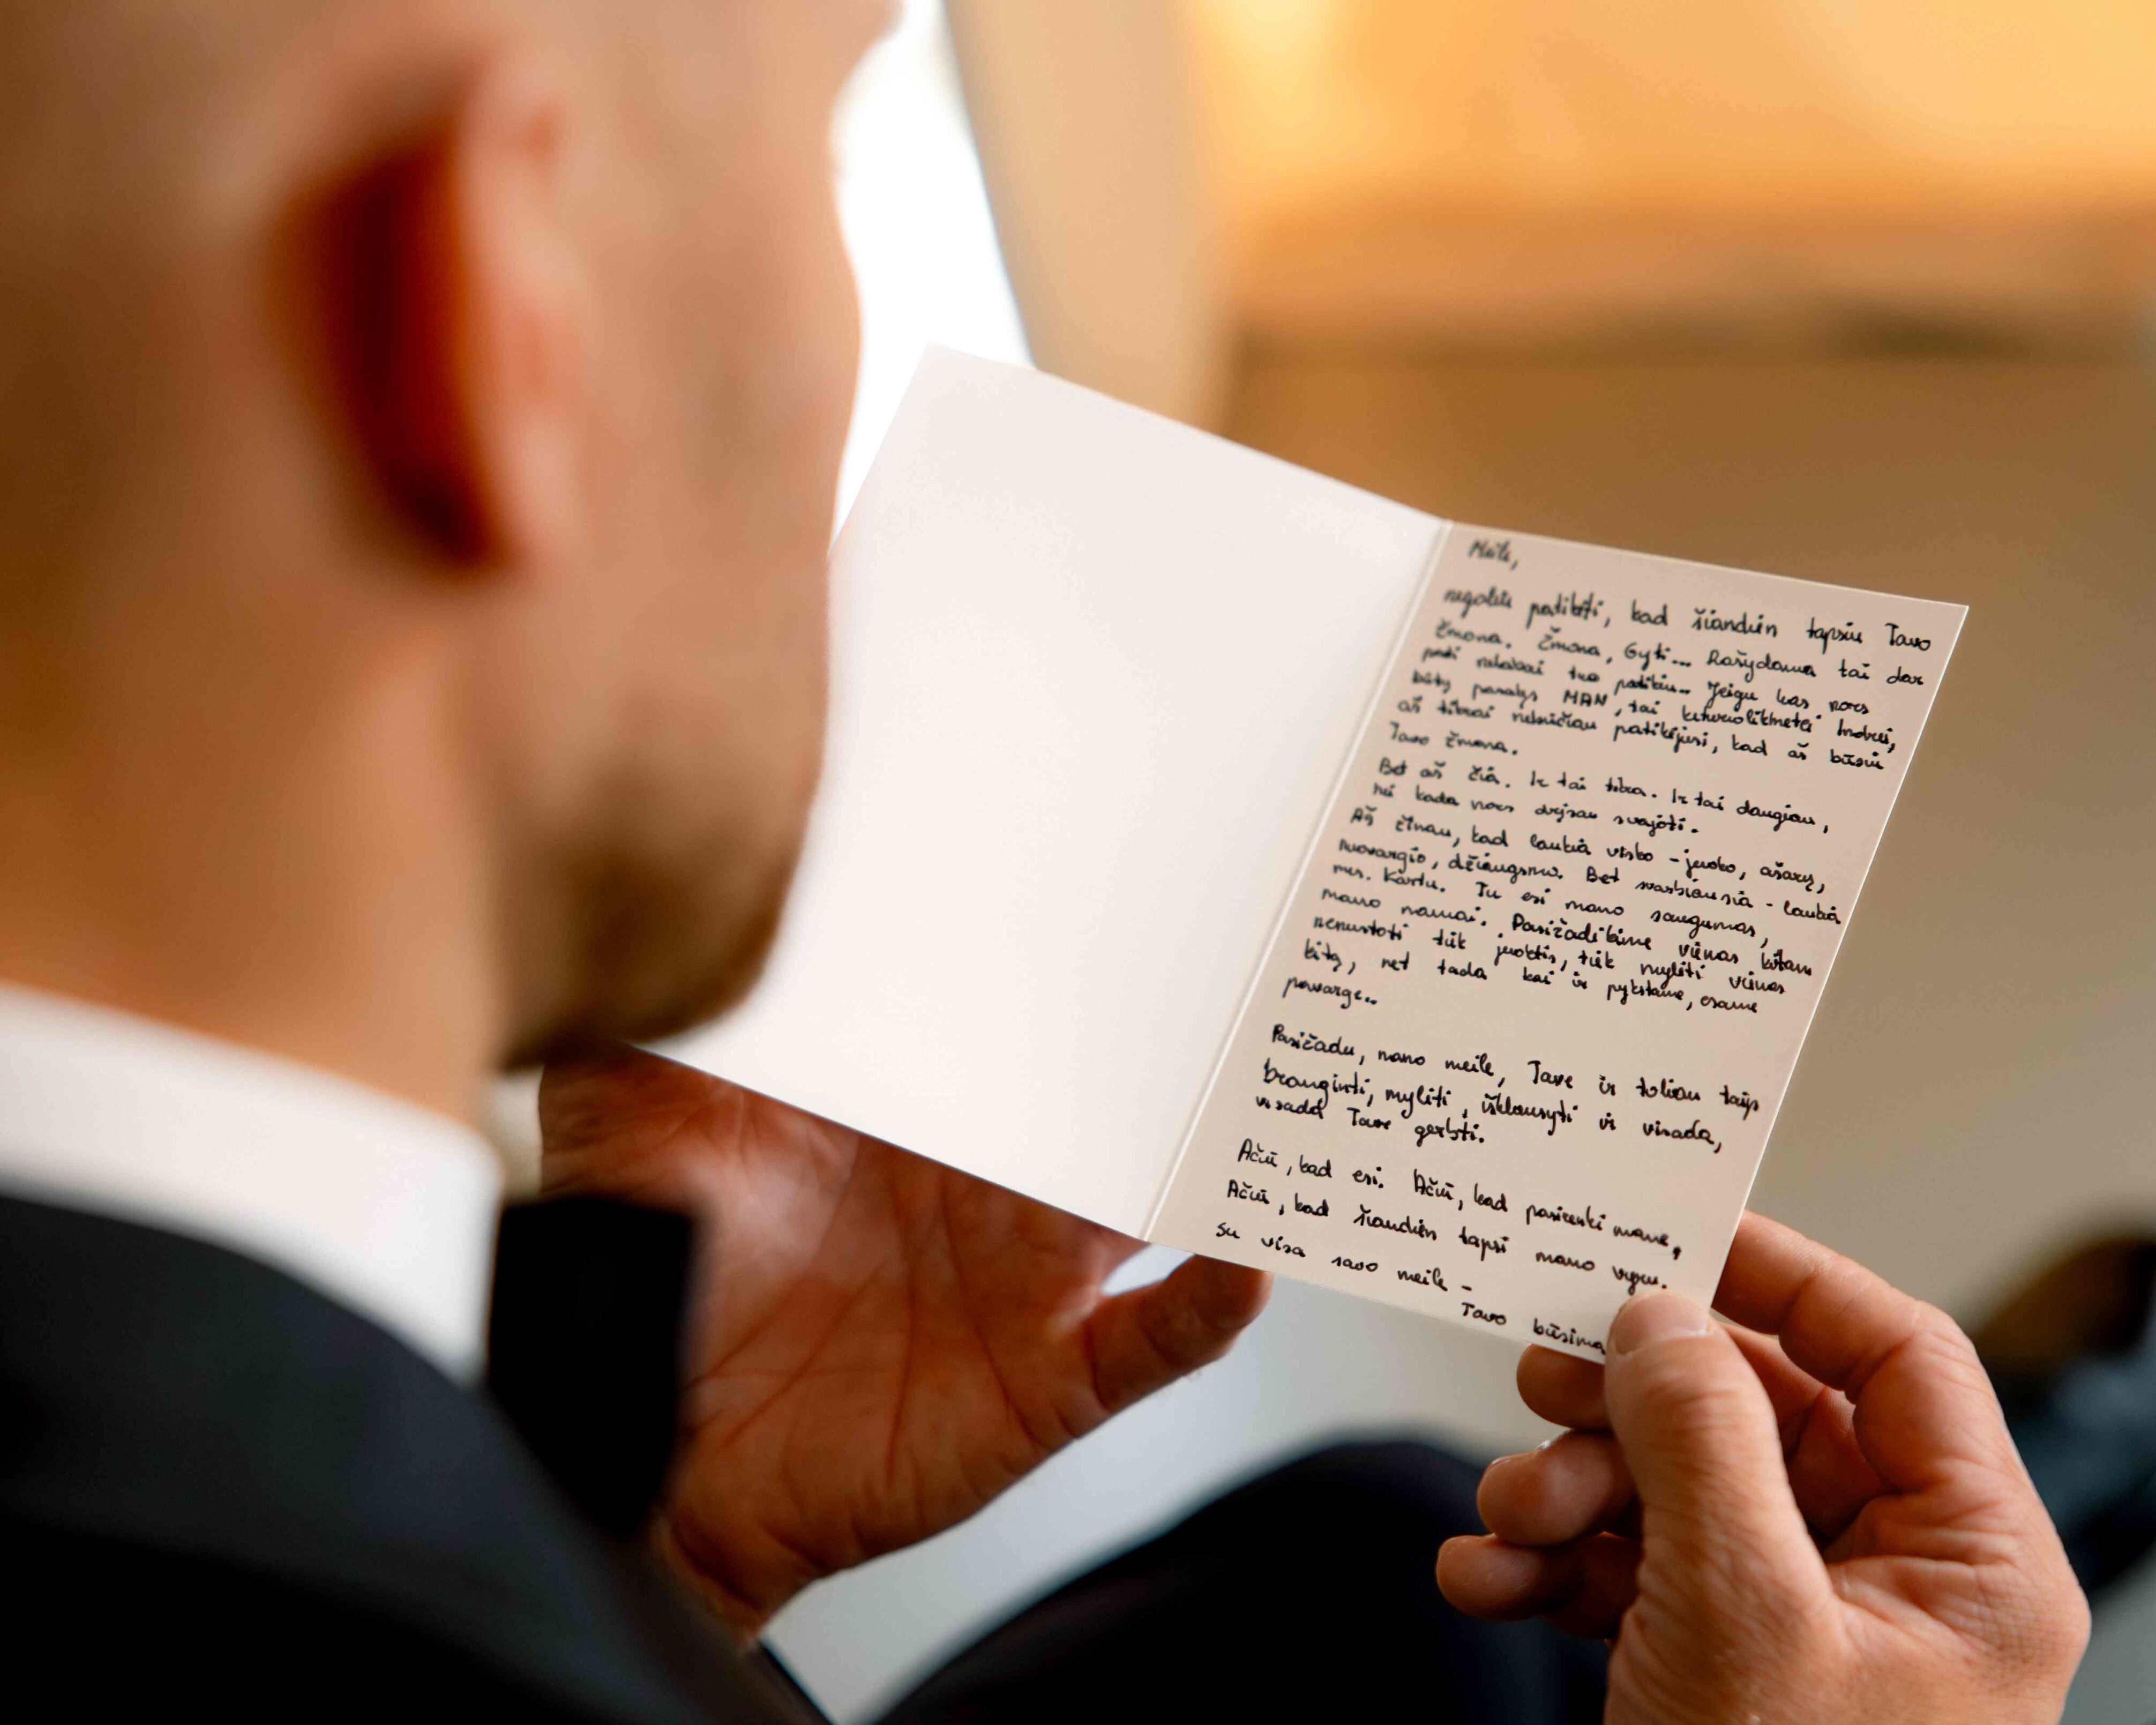 Meile,
negaliu patikėti, kad šiandien tapsiu Tavo
žmona. Žmona, Gyti... Rašydama tai dar
pati nelabai tuo patikiu... Jeigu kas nors
būtų pasakęs MAN, tai keturiolikmetei Indrei,
aš tikrai nebūčiau patikėjusi, kad aš būsiu
Tavo žmona.
Bet aš čia. Ir tai tikra. Ir tai daugiau,
nei kada nors drįsau svajoti.
Aš žinau, kad laukia visko - juoko, ašarų,
nuovargio, džiaugsmo. Bet svarbiausia - laukia
mes. Kartu. Tu esi mano saugumas,
mano namai. Pasižadėkime vienas kitam
nenustoti tiek juoktis, tiek mylėti vienas
kitą, net tada kai ir pykstame, esame
pavargę..
Pasižadu, mano meile, Tave ir toliau taip
branginti, mylėti, išklausyti ir visada,
visada Tave gerbti.
Ačiū, kad esi. Ačiū, kad pasirenki mane,
Ačiū, kad šiandien tapsi mano vyru.
Su visa savo meile -
Tavo būsima